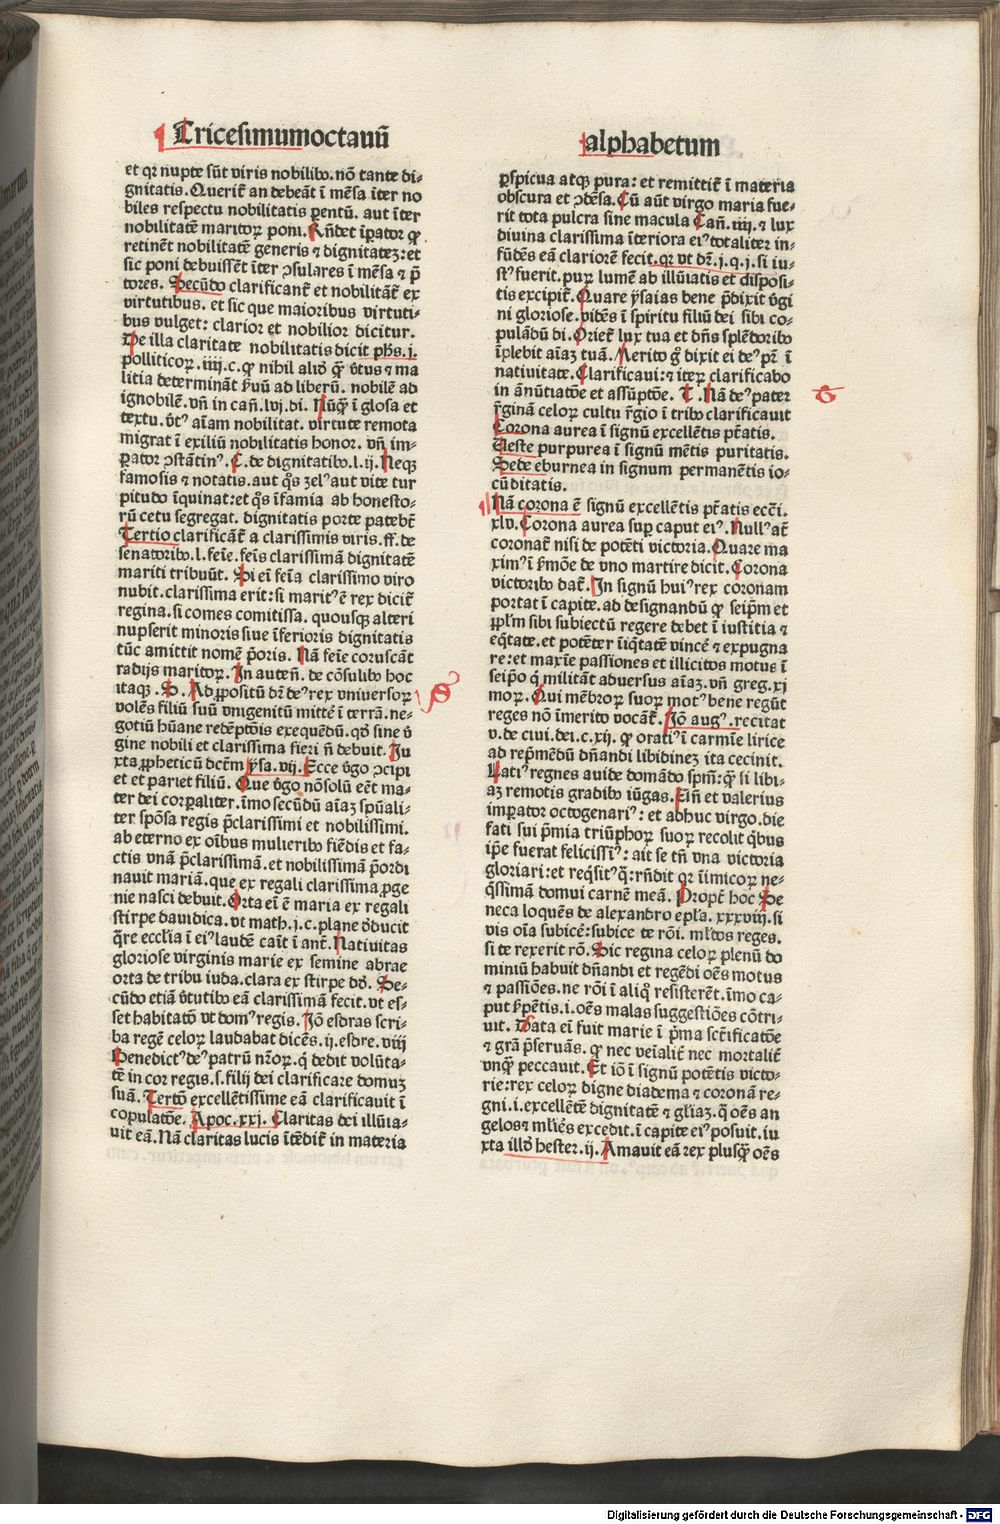 Tricesimumoctauū
alphabetum
et qꝛ nupte sūt viris nobilibꝰ. nō tante di-
gnitatis. Querit᷑ an debeāt ī mēsa īter no
biles respectu nobilitatis parentū. aut īter
nobilitatē maritoꝝ poni. Rn̄det īpator ꝙ
retinēt nobilitatē generis ⁊ dignitateꝫ: et
sic poni debuissēt īter ꝯsulares ī mēsa ⁊ p̄
tores. Secūdo clarificant᷑ et nobilitāt᷑ ex
virtutibus. et sic que maioribus virtuti-
bus vulget: clarior et nobilior dicitur.
De illa claritate nobilitatis dicit phs. j.
politicoꝝ. iiij. c. ꝙ nihil aliō ꝙ̄ v̓tus ⁊ ma
litia determināt ẜuū ad liberū. nobilē ad
ignobilē. vn̄ in cañ. lvj. di. Nūꝙ̄ ī glosa et
textu. v̓tꝰ aīam nobilitat. virtute remota
migrat ī exiliū nobilitatis honor. vn̄ im-
ꝑator ꝯstātinꝰ. C. de dignitatibꝰ. l. ij. Neqꝫ
famosis ⁊ notatis. aut q̄s ꝫelꝰ aut vite tur
pitudo īquinat: et q̄s īfamia ab honesto-
rū cetu segregat. dignitatis porte patebūt
Tertio clarificāt᷑ a clarissimis viris. ff. de
senatoribꝰ. l. feīe. feīs clarissimā dignitatē
mariti tribuūt. Si eī feīa clarissimo viro
nubit. clarissima erit: si maritꝰ ē rex dicit᷑
regina. si comes comitissa. quousqꝫ alteri
nupserit minoris siue īferioris dignitatis
tūc amittit nomē p̄oris. Nā feīe coruscāt
radijs maritoꝝ. In auteñ. de cōsulibꝰ hoc
itaqꝫ. S. Ad ꝓpositū dē deꝰ rex vniuersoꝝ
volēs filiū suū vnigenitū mittē ī terrā. ne-
gotiū hūane redēptōis exequēdū. qđ sine v̓
gine nobili et clarissima fieri n̄ debuit. Iu
xta ꝓpheticū dcēm ysa. vij. Ecce v̓go ꝯcipi
et et pariet filiū. Que v̓go nōsolū eēt ma-
ter dei corꝑaliter. īmo secūdū aīaꝫ spūali-
ter spōsa regis p̄clarissimi et nobilissimi.
ab eterno ex oībus mulieribꝰ fiēdis et fa-
ctis vnā p̄clarissimā. et nobilissimā p̄ordi
nauit mariā. que ex regali clarissima ꝓge
nie nasci debuit. Orta eī ē maria ex regali
stirpe dauidica. vt math. j. c. plane v̓ducit
q̄re eccl̄ia ī eiꝰ laudē caīt ī ant̄. Natiuitas
gloriose virginis marie ex semine abrae
orta de tribu iuda. clara ex stirpe dd̄. Se-
cūdo etiā v̓tutibꝰ eā clarissimā fecit. vt es-
set habitatō vt domꝰ regis. Iō esdras scri-
ba regē celoꝝ laudabat dicēs. ij. esdre. viij
Benedictꝰ deꝰ patrū nr̄oꝝ. q̇ dedit volūta-
tē in cor regis. s. filij dei clarificare domuꝫ
suā. Tertō excellētissime eā clarificauit ī
copulatōe. Apoc. xxj. Claritas dei illūia-
uit eā. Nā claritas lucis ītēdit᷑ in materia
ꝑspicua atqꝫ pura: et remittit᷑ ī materia
obscura et ꝯdēsa. Cū aūt virgo maria fue-
rit tota pulcra sine macula Cañ. iiij. ⁊ lux
diuina clarissima īteriora eiꝰ totaliter in-
fūdēs eā clariorē fecit. qꝛ vt dr̄. j. q. j. si iu-
stꝰ fuerit. puꝝ lumē ab illūiatis et disposi-
tis excipit᷑. Quare ysaias bene p̄dixit v̓gi
ni gloriose. vidēs ī spiritu filiū dei sibi co-
pulādū di. Oriet᷑ lux tua et dn̄s splēdoribꝰ
īplebit aīaꝫ tuā. Merito ḡ dixit ei deꝰ pr̄ ī
natiuitate. Clarificaui: ⁊ iteꝝ clarificabo
in ānūtiatōe et assūptōe. T. Nā deꝰ pater
v̓ginā celoꝝ cultu r̄gio ī tribꝰ clarificauit
Corona aurea ī signū excellētis ptātis.
Ueste purpurea ī signū mētis puritatis.
Sede eburnea in signum permanētis io-
cūditatis.
Nā corona ē signū excellētis ptātis ecc̄i.
xlv. Corona aurea suꝑ caput eiꝰ. Nullꝰ at̄
coronat᷑ nisi de potēti victoria. Quare ma
ximꝰ ī ẜmōe de vno martire dicit. Corona
victoribꝰ dat᷑. In signū huiꝰ rex coronam
portat ī capite. ad designandū ꝙ seip̄m et
ꝓpl̄m sibi subiectū regere debet ī iustitia ⁊
eq̄tate. et potēter īiq̄tatē vincē ⁊ expugna
re: et maxīe passiōes et illicitos motus ī
seipō q̇ militāt aduersus aīaꝫ. vn̄ greg. xj
moꝝ. Qui mēbroꝝ suoꝝ motꝰ bene regūt
reges nō īmerito vocāt᷑. Iō augꝰ. recitat
v. de ciui. dei. c. xij. ꝙ oratiꝰ ī carmīe lirice
ad rep̄mēdū dn̄andi libidineꝫ ita cecinit.
Latiꝰ regnes auide domādo spm̄: ꝙ̄ si libi-
aꝫ remotis gradibꝰ iūgas. Eiñ et valerius
imꝑator octogenariꝰ: et adhuc virgo. die
fati sui p̄mia triūphoꝝ suoꝝ recolit q̇bus
ip̄e fuerat felicissīꝰ: ait se tn̄ vna victoria
gloriari: et req̇sitꝰ q̄: rn̄dit qꝛ īimicoꝝ ne-
q̇ssimā domui carnē meā. Propt̄ hoc Se
neca loquēs de alexandro epl̄a. xxxviij. si
vis oīa subicē: subice te rōi. ml̄tos reges.
si te rexerit rō. Sic regina celoꝝ plenū do
miniū habuit dn̄andi et regēdi oēs motus
⁊ passiōes. ne rōi ī aliq̇ resisterēt. īmo ca-
put ẜpētis. i. oēs malas suggestiōes cōtri-
uit. Data eī fuit marie ī p̄ma sctīficatōe
⁊ grā p̄seruās. ꝙ nec veīalit᷑ nec mortalit᷑
vnꝙ̄ peccauit. Et iō ī signū potētis victo-
rie: rex celoꝝ digne diadema ⁊ coronā re-
gni. i. excellētē dignitatē ⁊ gl̄iaꝫ. q̄ oēs an
gelos ⁊ ml̄ies excedit. ī capite eiꝰ posuit. iu
xta illđ hester. ij. Amauit eā rex plusꝙ̄ oēs
Digitalisierung gefördert durch die Deutsche Forschungsgemeinschaft - DFG